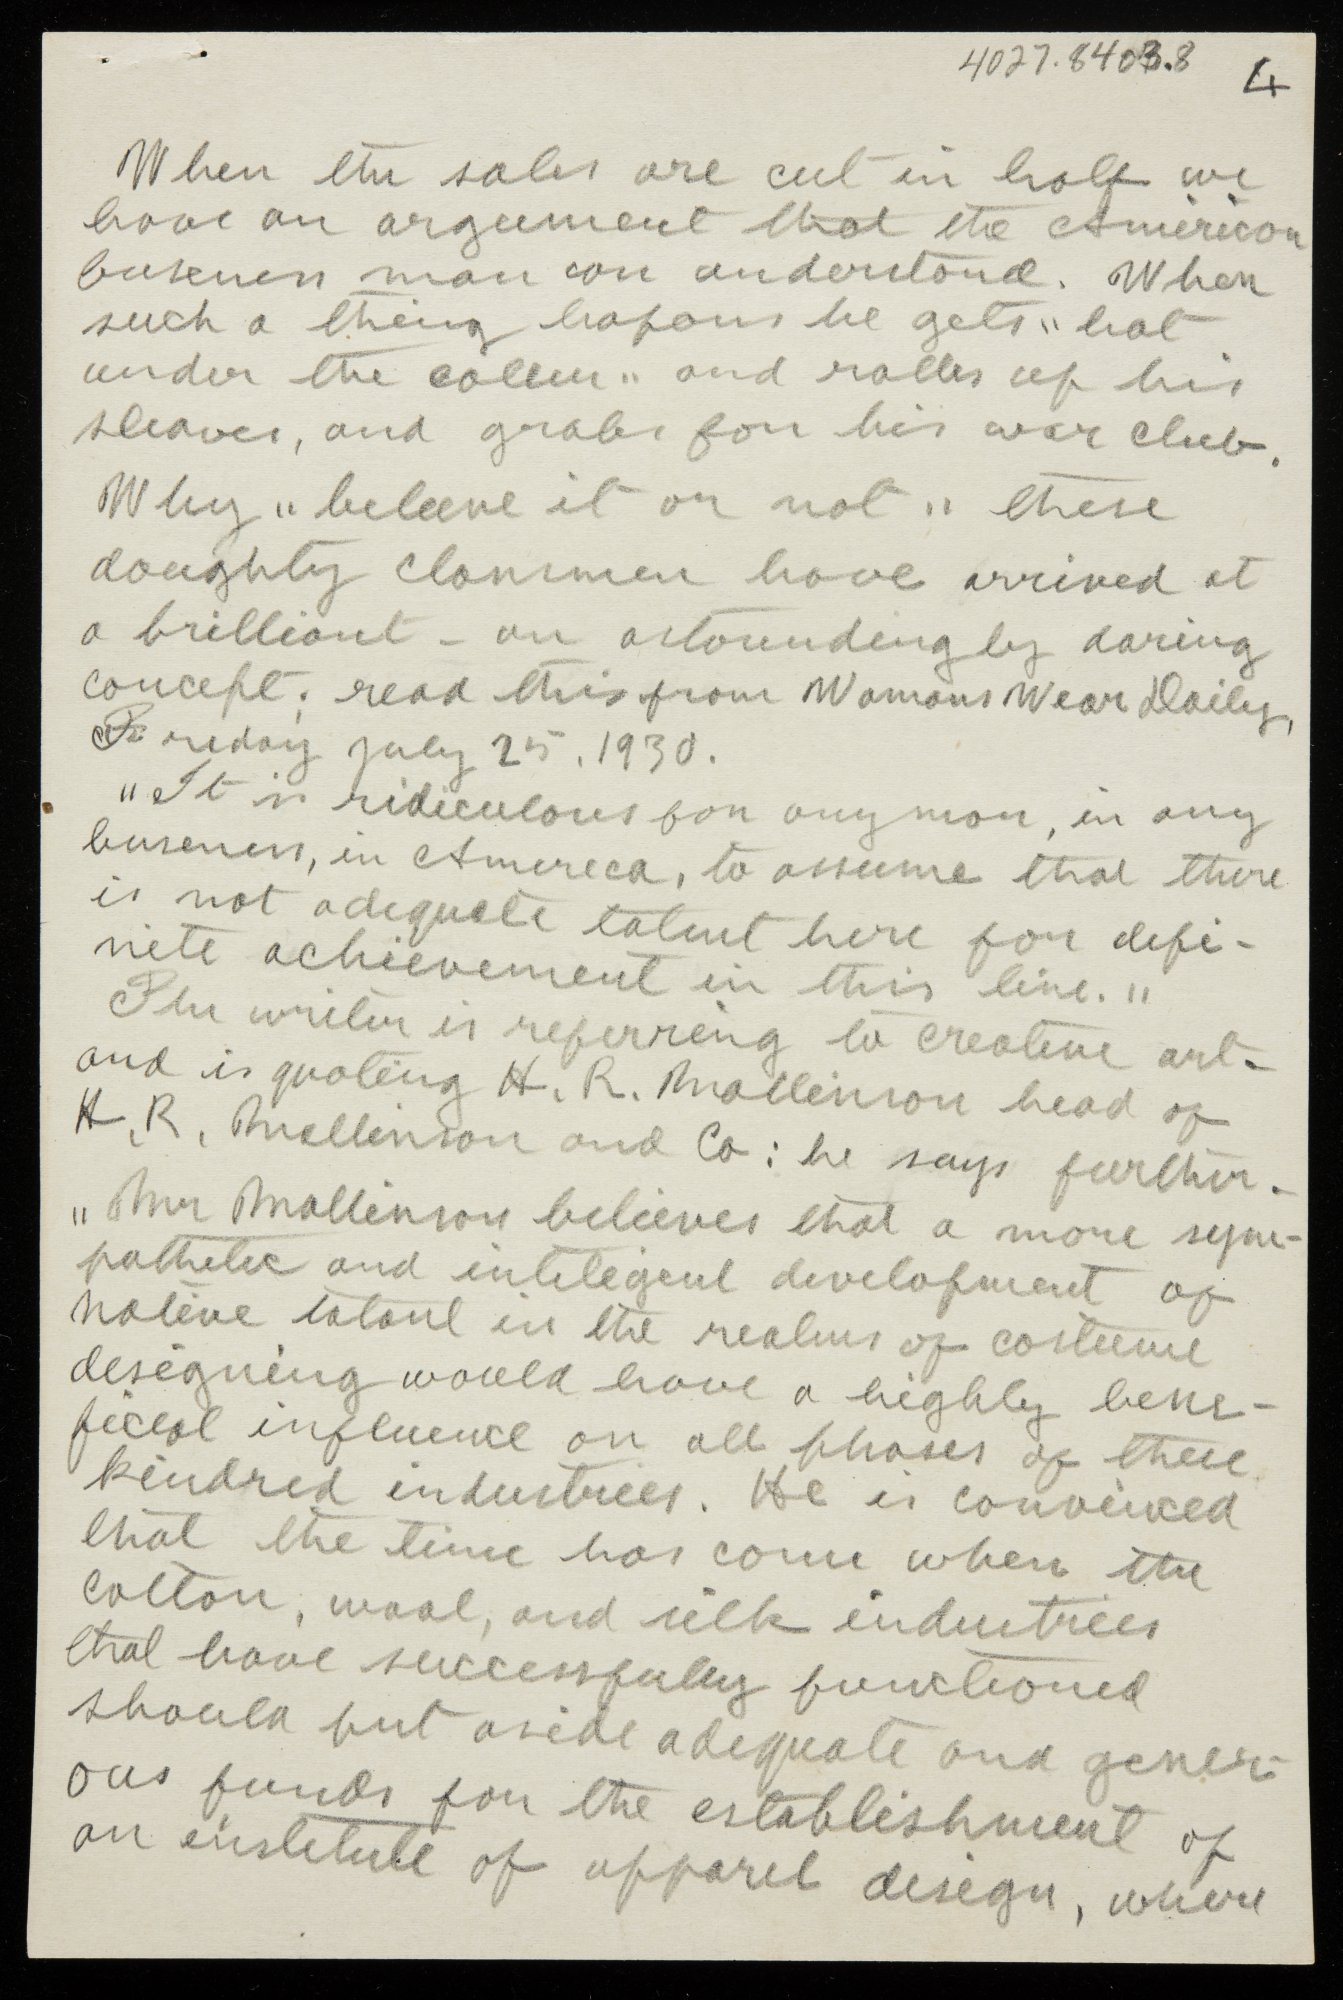 4027.8403.8 4
When the sales are cut in half we
have an argument that the American
buseness man can understand. When
such a thing hapons he gets "hot
under the coller" and rolles up his
sleaves, and grabs for his war club.
Why "beleeve it or not" these
doughty clansmen have arrived at
a brilliant - an astoundingly daring
concept; read this from Womans Wear Daily,
Freday July 25, 1930.
"It is ridiculous for any man, in any
buseness, in Amereca, to assume that there
is not adequate talent here for defi-
nite achievement in this line."
The writer is referring to creative art-
and is quoting H. R. Mallinson head of
H. R. Mallinson and Co: he says further-
"Mr Mallinson believes that a more sym-
pathetic and inteligent development of
native talant in the realms of costume
designing would have a highly bene-
ficial influence on all phases of these
kindred industries. He is convinced
that the time has come when the
cotton, wool, and silk industries
that have successfuly functioned
should put aside adequate and gener-
ous funds for the establishment of
an institute of apparel design, where